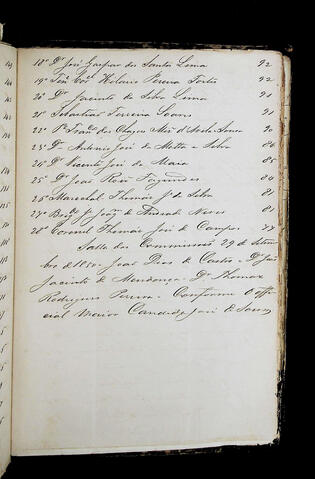 18º Dr José Gaspar dos Santos Lima 92
19º Ten Cor Hilario Pereira Fortes 92
20º Dr Jacinto da Silva Lima 91
21º Sebastião Ferreira Soares 91
22º Pe Franco das Chagas 90
23º Dr Antonio José de Motta e Silva 86
24º Dr Vicente José da Maia 85
25º Dr João Rois Fagundes 84
26º Marechal Thomás Je da Silva 81
27º Brigo Je João de Andrade Neves 81
28º Coronel Thomás José de Campos 77
Salla das Commissões 29 de Setem
bro de João Dias de Castro - Dr José
Jacintho de Mendonça - Dr Thomax
Rodrigues Pereira - Conforme O offi
cial Maior Candido José de Souza